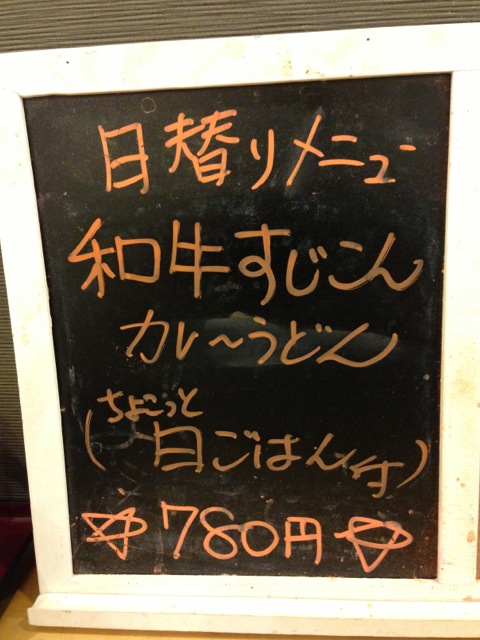 日替りメニュー
和牛すじこん
カレ～うどん
(ちょこっと
白ごはん付)
☆780円☆